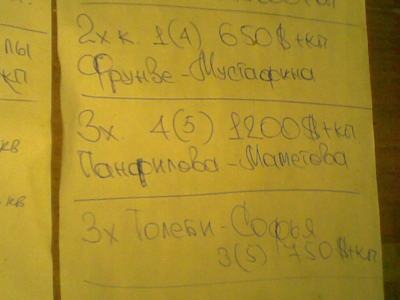 лы
кп
2х к. 1(4) 650$+кп
Фрунзе-Мустафина
3х. 4(5) 1200$+кп
кв
Панфилова-Маметова
кв
3х Толеби-Софья
3(5) 750$+кп